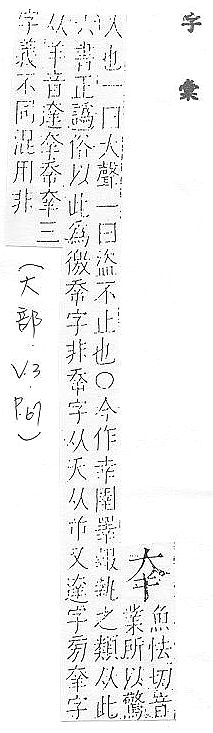 字彙
㚔
魚怯切音
業所以驚
人也一曰大聲一曰盜不止也○今作幸圉睪報執之類从此
六書正譌俗以此為徼𡴘字非𡴘字从夭从屰又達字旁羍字
从羊音達㚔𡴘羍三
字義不同混用非
(大部.V.3.P.67)